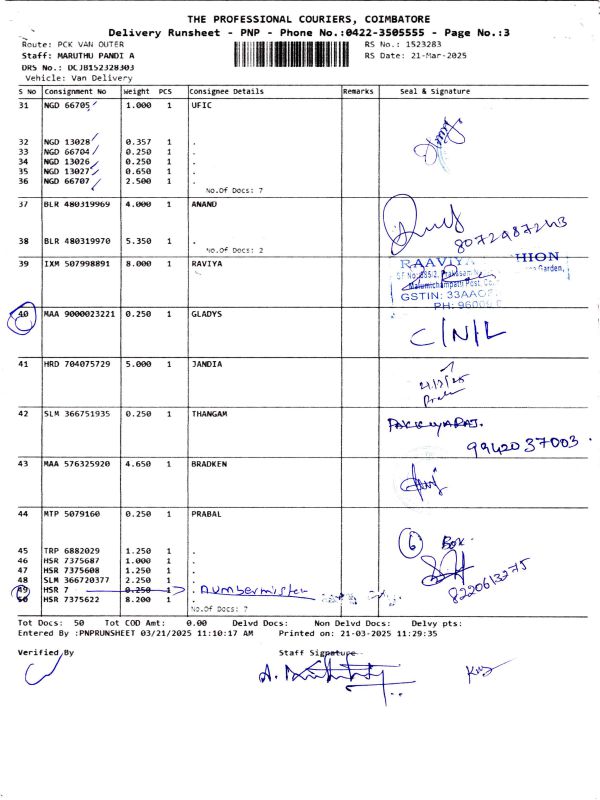 THE PROFESSIONAL COURIERS, COIMBATORE
Delivery Runsheet - PNP - Phone No.:0422-3505555 - Page No.:3
Route: PCK VAN OUTER
RS No.: 1523283
Staff: MARUTHU PANDI A
RS Date: 21-Mar-2025
DRS No.: DCJB152328303
Vehicle: Van Delivery
S No Consignment No Weight PCS Consignee Details Remarks Seal & Signature
31 NGD 66705 1.000 1 UFIC
32 NGD 13028 0.357 1 .
33 NGD 66704 0.250 1 .
34 NGD 13026 0.250 1 .
35 NGD 13027 0.650 1 .
36 NGD 66707 2.500 1 .
No.Of Docs: 7
37 BLR 480319969 4.000 1 ANAND
8072987243
38 BLR 480319970 5.350 1 .
No.Of Docs: 2
39 IXM 507998891 8.000 1 RAVIYA
RAAVIYA HION
Garden,
Malumichampatti Post, Co
GSTIN: 33AAO
PH: 96000
40 MAA 9000023221 0.250 1 GLADYS
C/N/L
41 HRD 704075729 5.000 1 JANDIA
21/3/25
42 SLM 366751935 0.250 1 THANGAM
9942037003.
43 MAA 576325920 4.650 1 BRADKEN
44 MTP 5079160 0.250 1 PRABAL
6 Box.
45 TRP 6882029 1.250 1 .
46 HSR 7375687 1.000 1 .
47 HSR 7375608 1.250 1 .
48 SLM 366720377 2.250 1 .
8220613275
49 HSR 7 0.250 1 . Numbermistec
50 HSR 7375622 8.200 1 .
No.Of Docs: 7
Tot Docs: 50 Tot COD Amt: 0.00 Delvd Docs: Non Delvd Docs: Delvy pts:
Entered By :PNPRUNSHEET 03/21/2025 11:10:17 AM Printed on: 21-03-2025 11:29:35
Verified By
Staff Signature